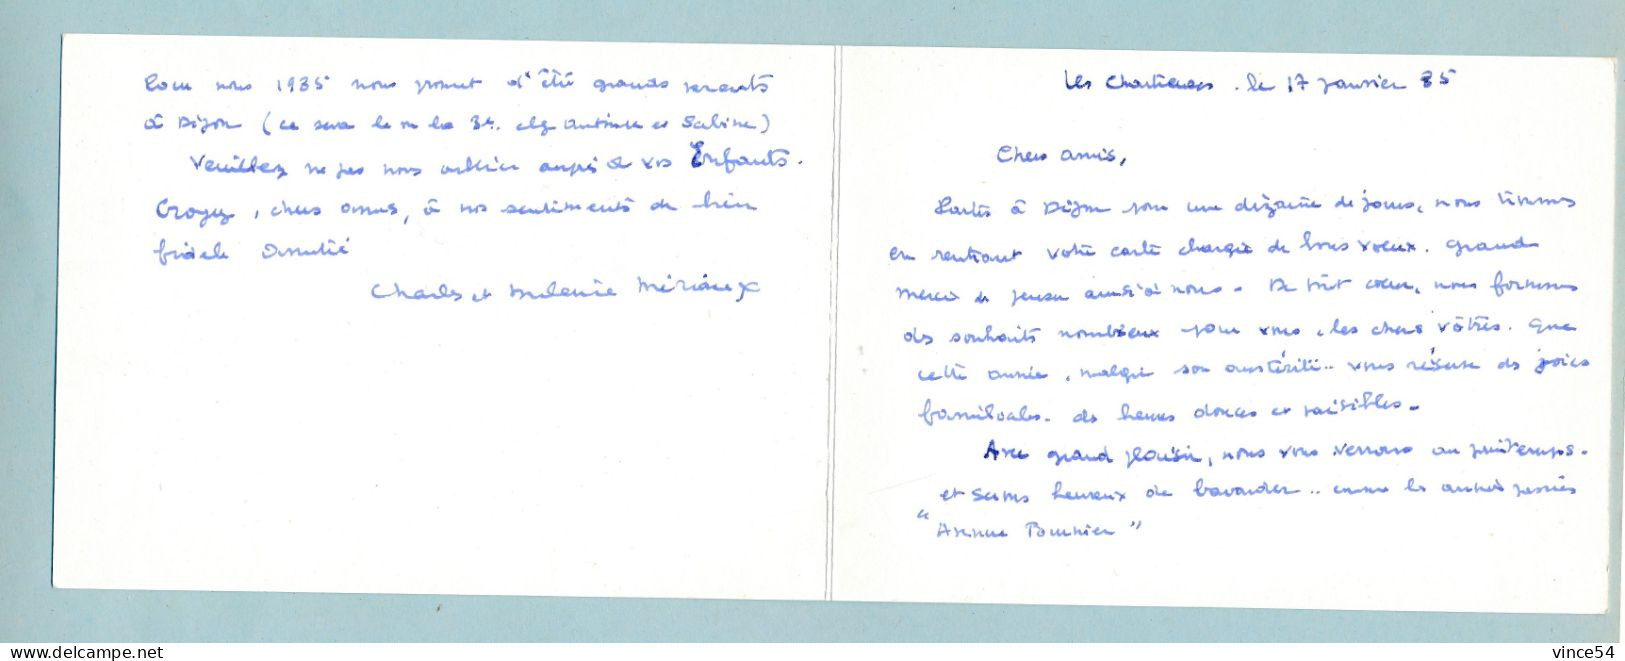 Les Chartreuses . le 17 janvier 85
Chers amis,
Partis à Dijon pour une dizaine de jours, nous trouvons
en rentrant votre carte chargée de bons voeux. Grand
merci de penser aussi à nous. De tout coeur, nous formons
des souhaits nombreux pour vous, les chers vôtres. Que
cette année, malgré son austérité.. vous réserve des joies
familiales. des heures douces et paisibles.
Avec grand plaisir, nous vous verrons au printemps.
et serons heureux de bavarder.. comme les années passées
"Avenue Fournier"
Pour nous 1985 nous promet d'être grands parents
à Dijon (ce sera le 3e. chez Antoine et Sabine)
Veuillez ne pas nous oublier auprès de vos Enfants.
Croyez, chers amis, à nos sentiments de bien
fidèle Amitié
Charles et Mériaux
www.delcampe.net
vince54